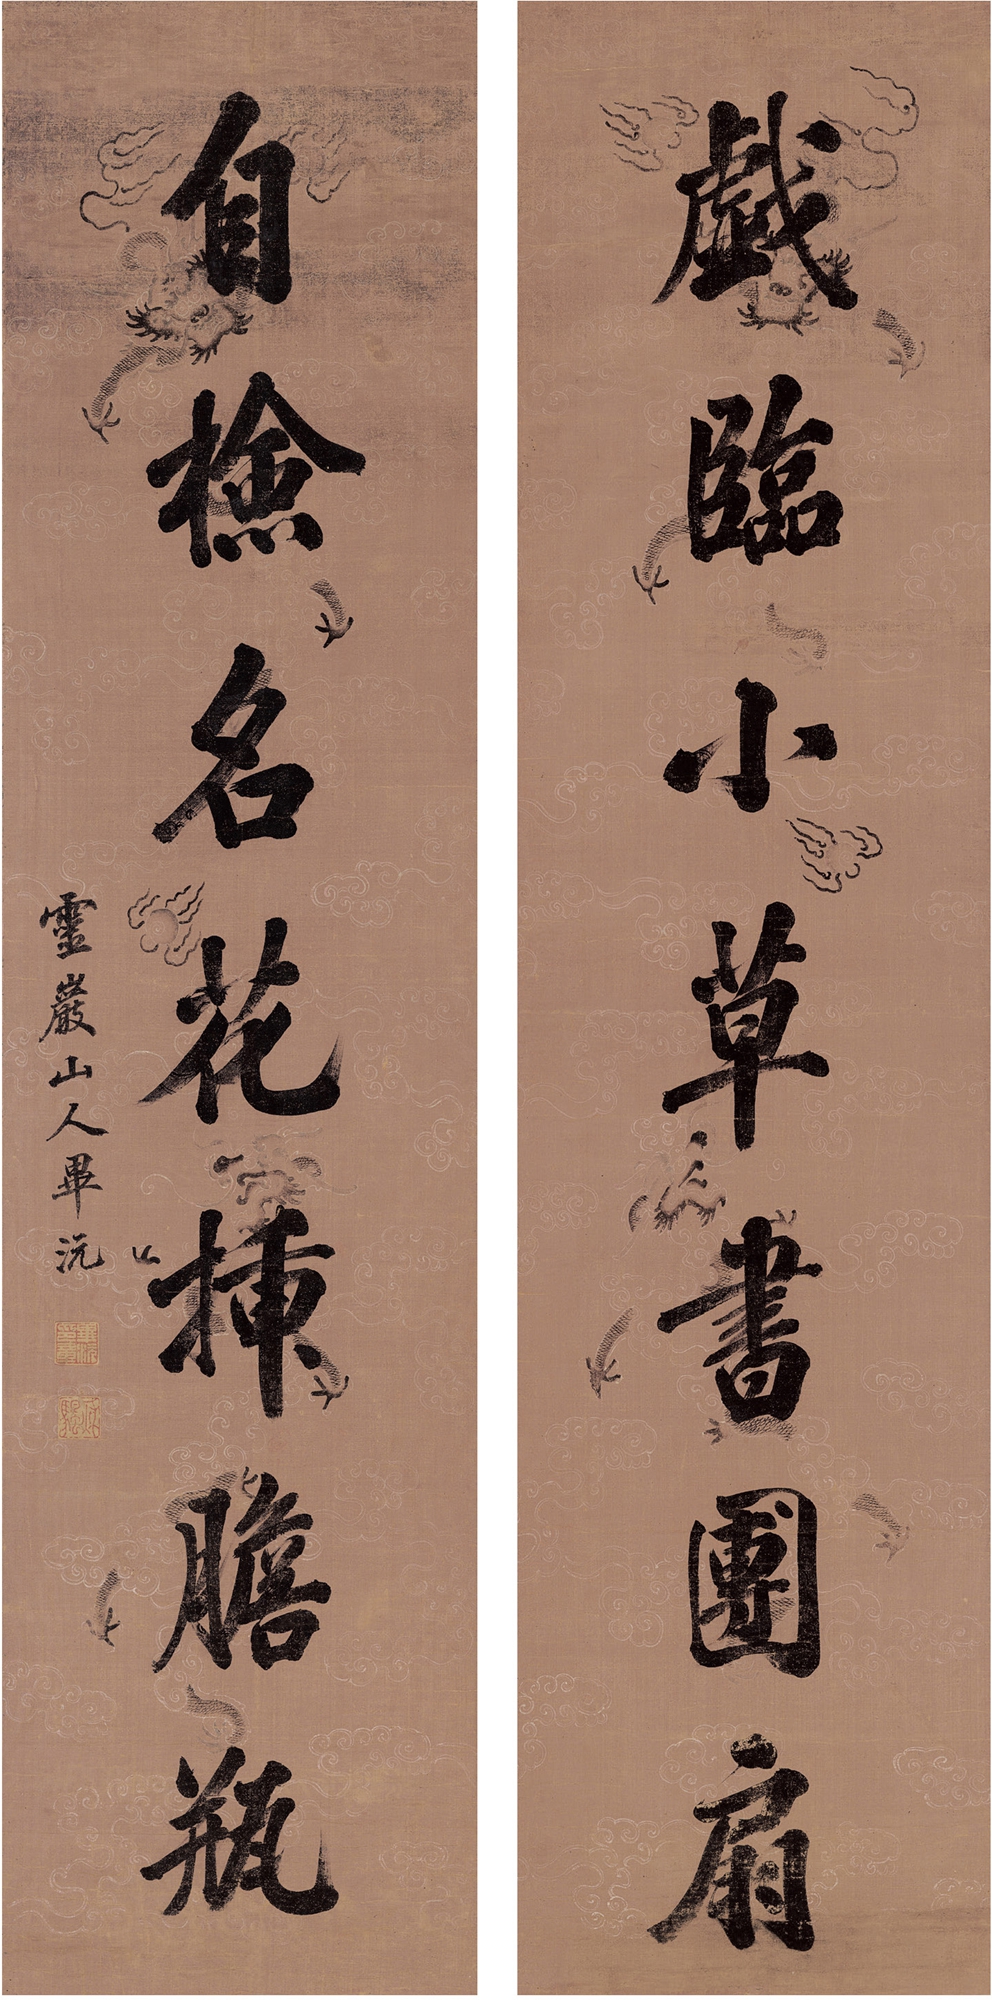 戲臨小草書團扇
自檢名花插膽瓶
靈巖山人畢沅